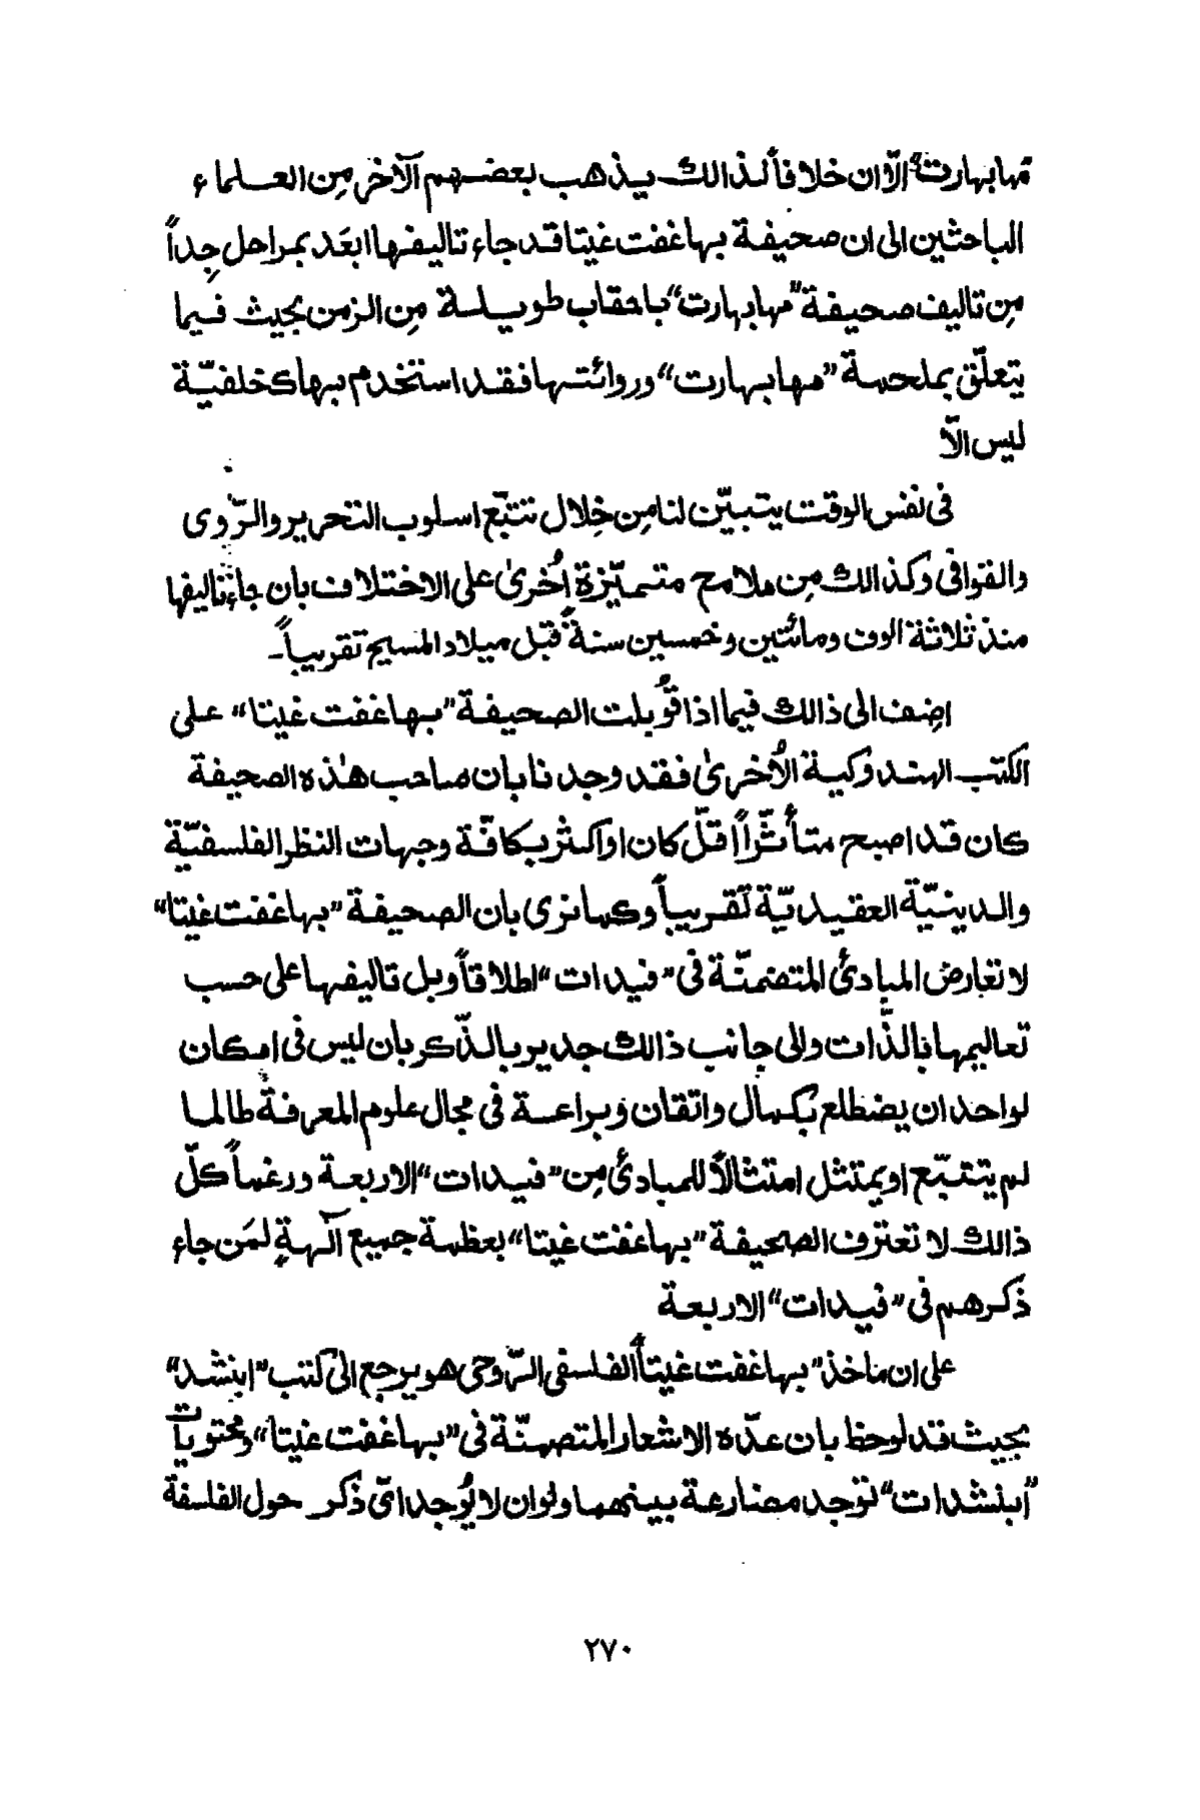 مهابهارت" الّا ان خلافاً لذالك يذهب بعضهم الآخر مِن العلماء
الباحثين الى ان صحيفة بهاغفت غيتا قد جاء تاليفها ابعَد بمراحل جِداً
مِن تاليف صحيفة "مهابهارت" باحقاب طويلة مِن الزمن بحيث فيما
يتعلّق بملحمة "مهابهارت" وروائتها فقد استخدم بها كخلفيّة
ليس الّا
فى نفس الوقت يتبيّن لنا مِن خِلال تتبّع اسلوب التحرير والرّوى
والقوافى وكذالك مِن ملامح متميّزة اُخرىٰ على الاختلاف بان جاء تاليفها
منذ ثلاثة الوف ومائتين وخمسين سنةً قبل ميلاد المسيح تقريباً۔
اضِف الى ذالك فيما اذا قُوبلت الصحيفة "بهاغفت غيتا" على
الكتب الهندوكية الاُخرىٰ فقد وجدنا بان صاحب هٰذه الصحيفة
كان قد اصبح متأثّراً اقلّ كان او اكثر بكافّة وجهات النظر الفلسفيّة
والدينيّة العقيديّة تقريباً وكما نرى بان الصحيفة "بهاغفت غيتا"
لا تعارض المبادئ المتضمنّة فى "فيدات" اطلاقاً وبل تاليفها على حسب
تعاليمها بالذّات والى جانب ذالك جدير بالذّكر بان ليس فى امكان
لواحد ان يضطلع بكمال واتقان وبراعة فى مجال علوم المعرفة طالما
لم يتتبّع او يمتثل امتثالاً للمبادئ مِن "فيدات" الاربعة ورغماً كلّ
ذالك لا تعترف الصحيفة "بهاغفت غيتا" بعظمة جميع آلهةٍ لمَن جاء
ذكرهم فى "فيدات" الاربعة
على ان ماخذ "بهاغفت غيتا" الفلسفى الرّوحى هو يرجع الى كتب "ابنشد"
بحيث قد لوحظ بان عدّه الاشعار المتضمنّة فى "بهاغفت غيتا" ومحتويات
"ابنشدات" توجد مضارعة بينهما ولو ان لا يُوجد اىّ ذكر حول الفلسفة
٢٧٠